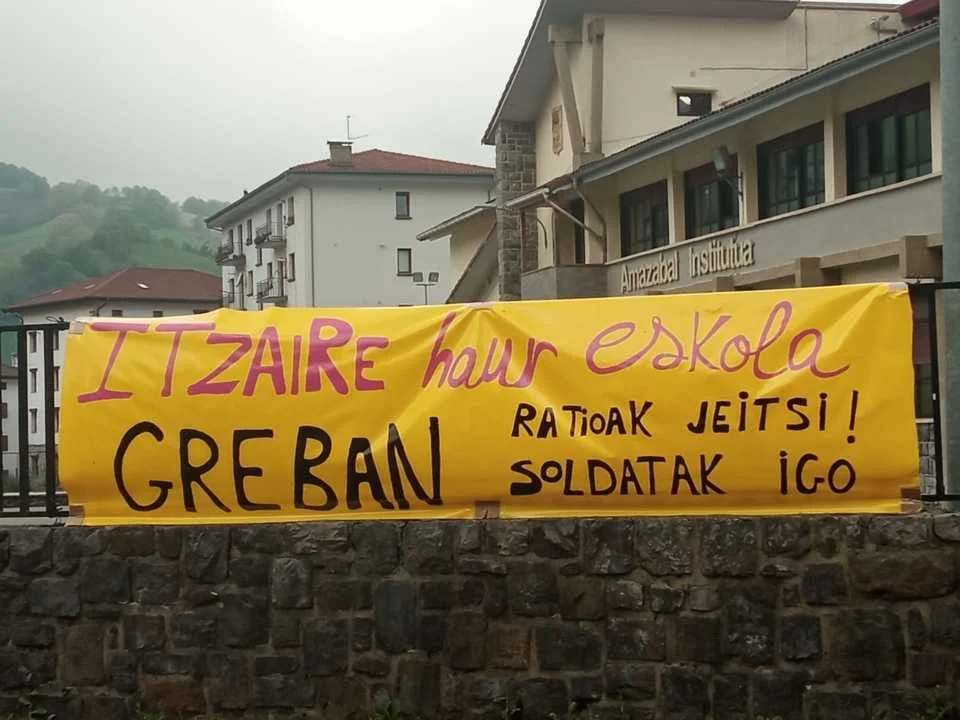 Amazabal Institutua
ITZAIRE haur eskola
GREBAN
RATIOAK JEITSI!
SOLDATAK IGO